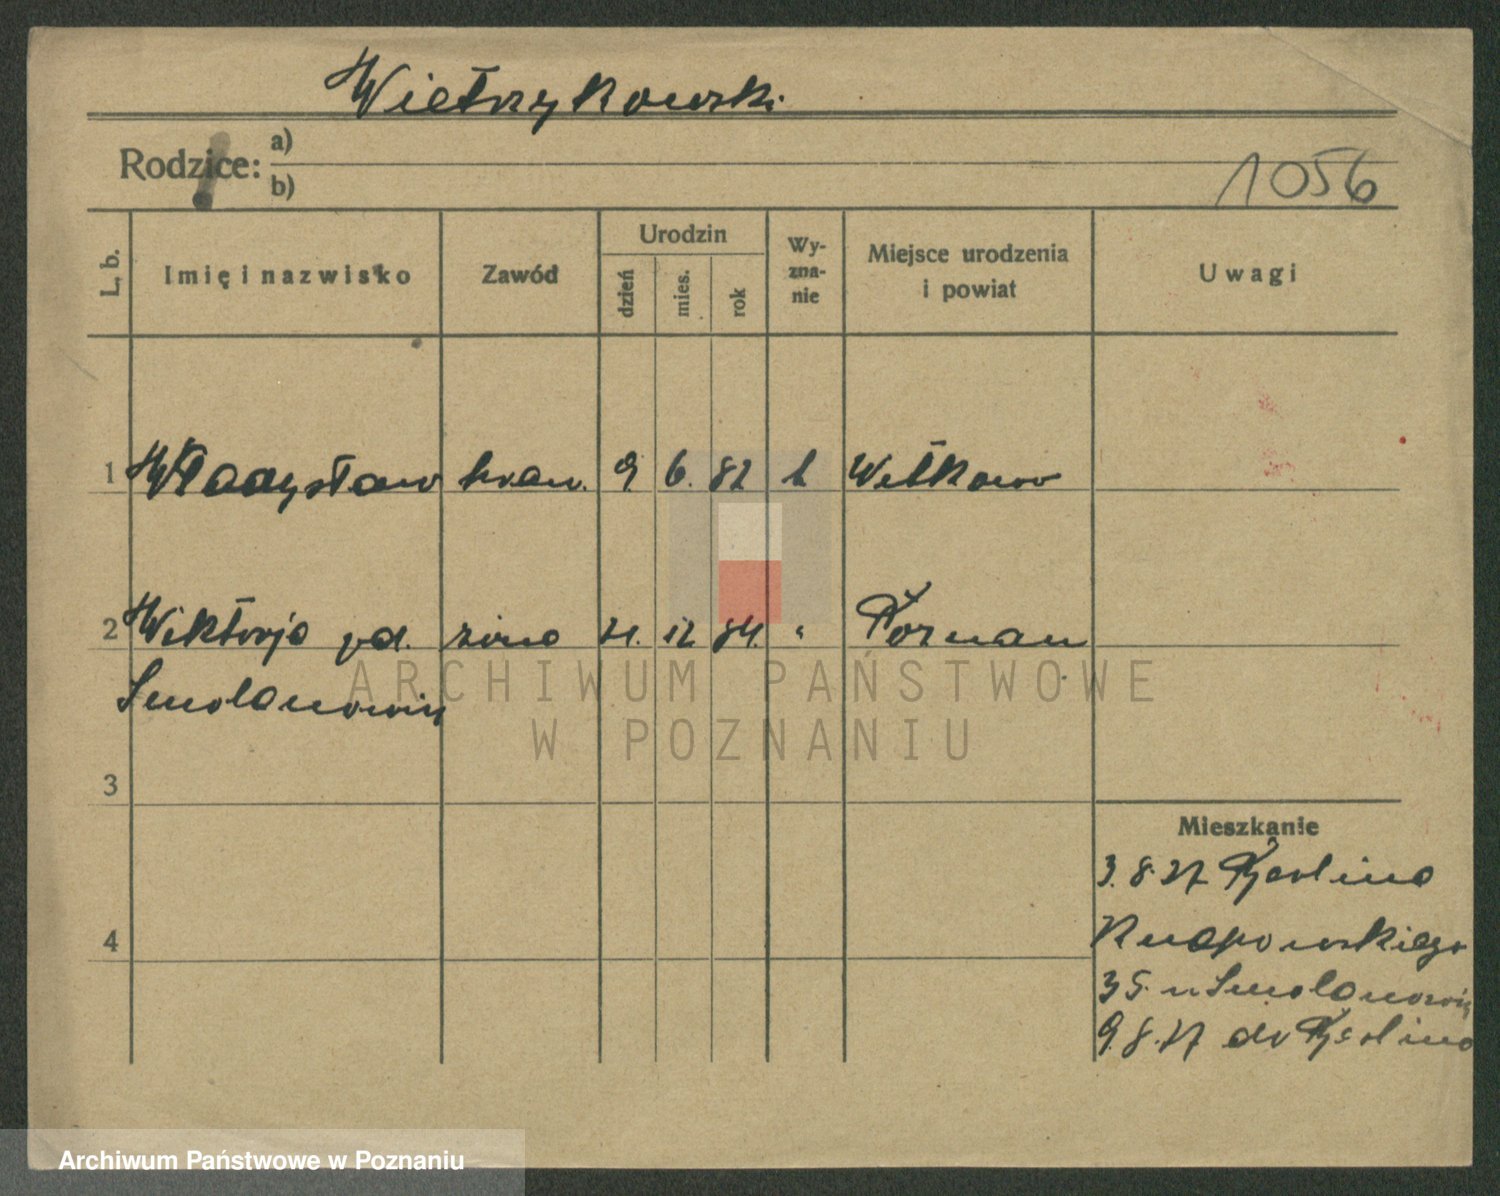 Wietrzykowski
Rodzice: a)
b)
1056
L. b.
Imię i nazwisko
Zawód
Urodzin
dzień
mies.
rok
Wy-
zna-
nie
Miejsce urodzenia
i powiat
Uwagi
1 Władysław kraw. 9. 6. 82 k Witkowo
2 Wiktorja zd. żona 21. 12 84. " Poznań
Smolanowicz
3
4
Mieszkanie
3.8.27
Knapowskiego
35 u Smolanowicz
9.8.27 do
ARCHIWUM PAŃSTWOWE
W POZNANIU
Archiwum Państwowe w Poznaniu